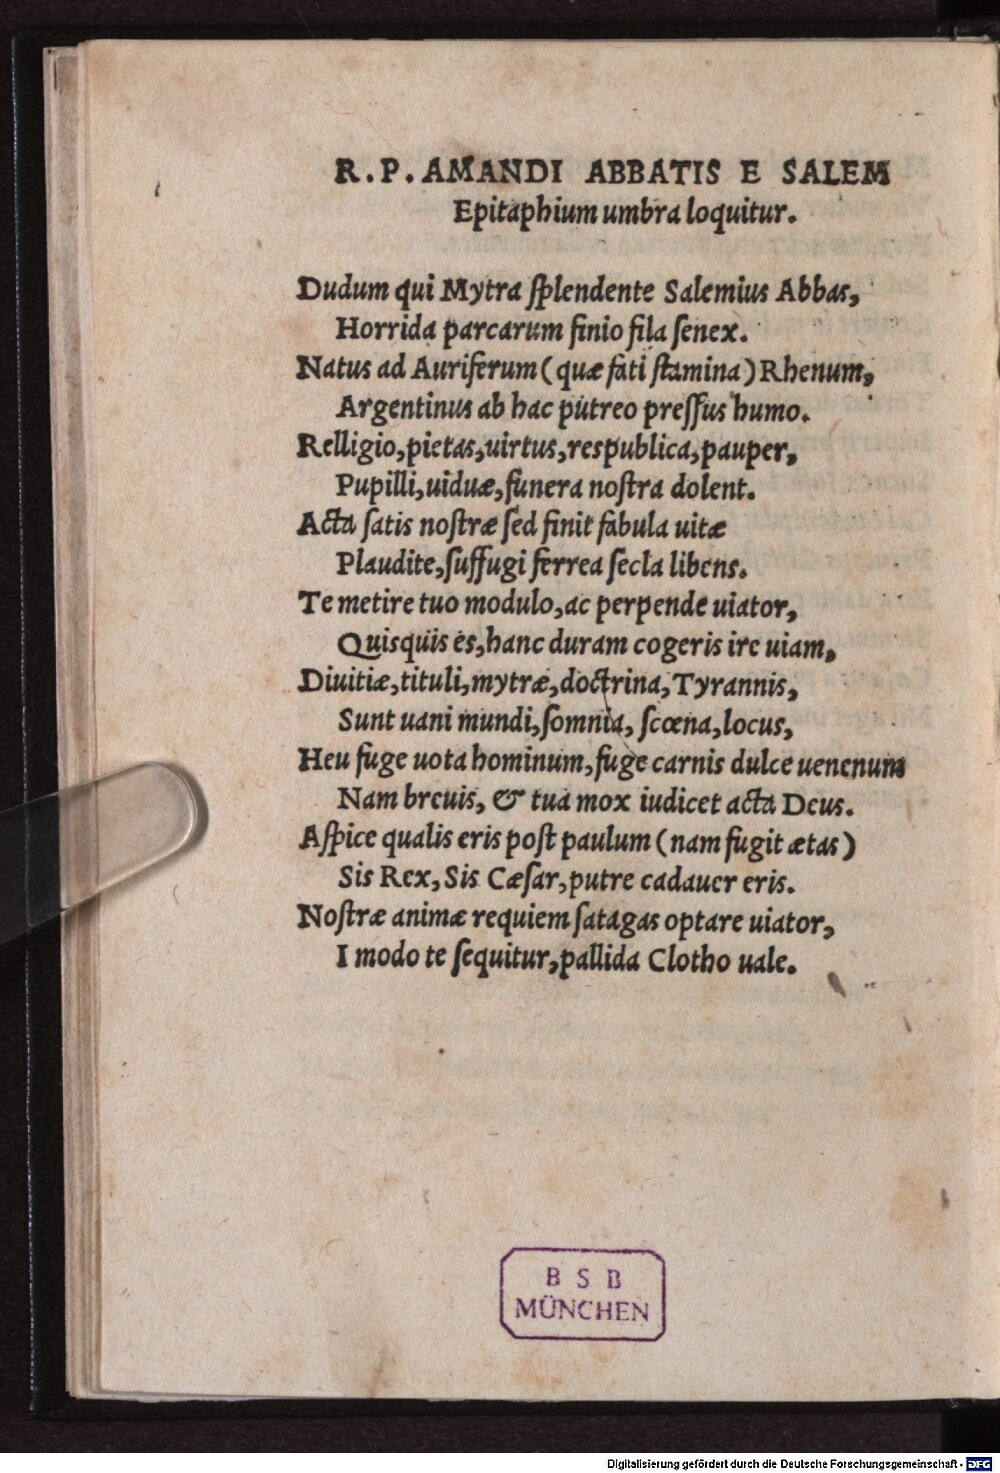 R. P. AMANDI ABBATIS E SALEM
Epitaphium umbra loquitur.
Dudum qui Mytra ſplendente Salemius Abbas,
Horrida parcarum finio fila ſenex.
Natus ad Auriferum (quæ fati ſtamina) Rhenum,
Argentinus ab hac putreo preſſus humo.
Relligio, pietas, uirtus, respublica, pauper,
Pupilli, uiduæ, funera noſtra dolent.
Acta ſatis noſtræ ſed finit fabula uitæ
Plaudite, ſuffugi ferrea ſecla libens.
Te metire tuo modulo, ac perpende uiator,
Quisquis es, hanc duram cogeris ire uiam,
Diuitiæ, tituli, mytræ, doctrina, Tyrannis,
Sunt uani mundi, ſomnia, ſcœna, locus,
Heu fuge uota hominum, fuge carnis dulce uenenum
Nam breuis, & tua mox iudicet acta Deus.
Aſpice qualis eris poſt paulum (nam fugit ætas)
Sis Rex, Sis Cæſar, putre cadauer eris.
Noſtræ animæ requiem ſatagas optare uiator,
I modo te ſequitur, pallida Clotho uale.
B S B
MÜNCHEN
Digitalisierung gefördert durch die Deutsche Forschungsgemeinschaft - DFG